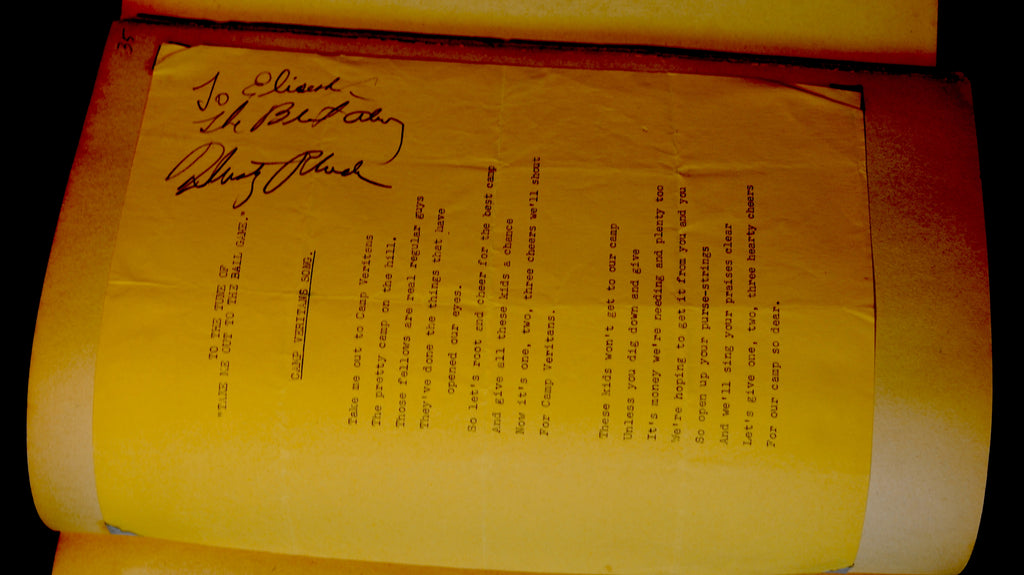 35
To Eliseah
The Best Always
Dusty Rhodes
TO THE TUNE OF
"TAKE ME OUT TO THE BALL GAME."
CAMP VERITANS SONG.
Take me out to Camp Veritans
The pretty camp on the hill.
Those fellows are real regular guys
They've done the things that have
opened our eyes.
So let's root and cheer for the best camp
And give all these kids a chance
Now it's one, two, three cheers we'll shout
For Camp Veritans.
These kids won't get to our camp
Unless you dig down and give
It's money we're needing and plenty too
We're hoping to get it from you and you
So open up your purse-strings
And we'll sing your praises clear
Let's give one, two, three hearty cheers
For our camp so dear.